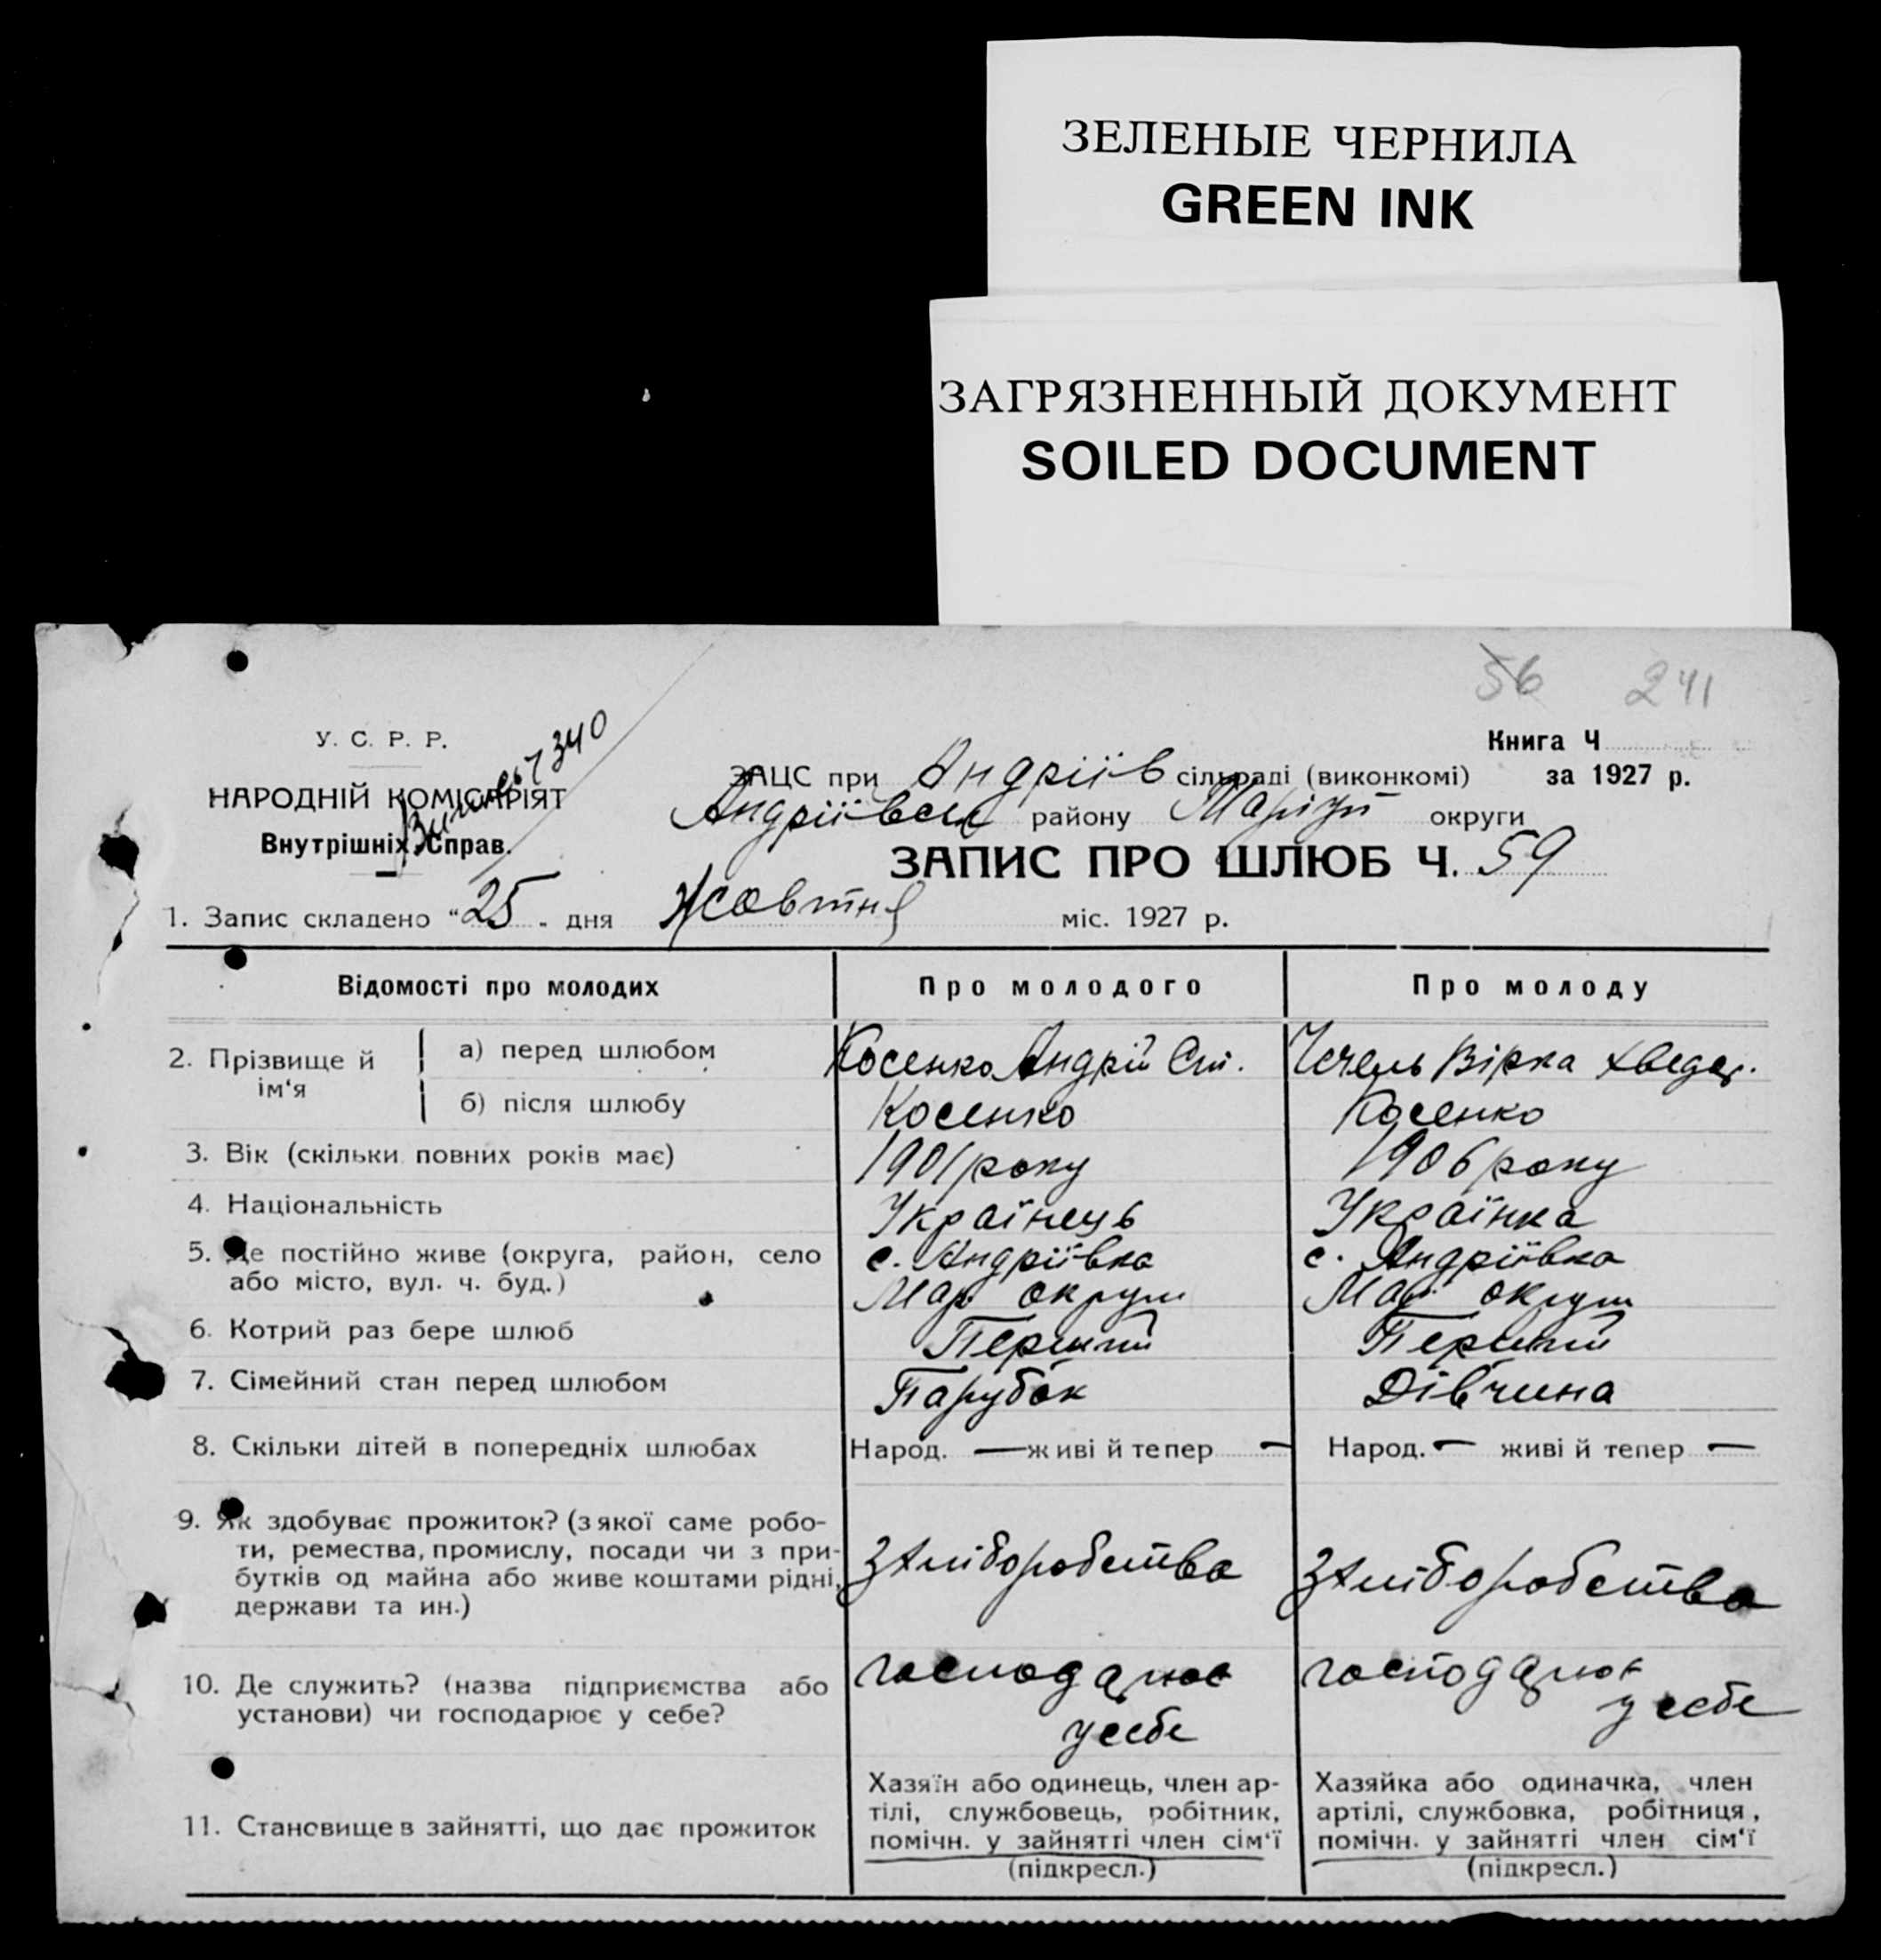 ЗЕЛЕНЫЕ ЧЕРНИЛА
GREEN INK
ЗАГРЯЗНЕННЫЙ ДОКУМЕНТ
SOILED DOCUMENT
56 241
У. С. Р. Р.
НАРОДНІЙ КОМІСАРІЯТ
Внутрішніх Справ.
340
Книга Ч
ЗАЦС при Андріїв сільраді (виконкомі) за 1927 р.
Андріївськ району Маріуп округи
ЗАПИС ПРО ШЛЮБ Ч. 59
1. Запис складено "25" дня Жовтня міс. 1927 р.
Відомості про молодих Про молодого Про молоду
2. Прізвище й ім'я
а) перед шлюбом Косенко Андрій Ст. Чечель Вірка Хведор.
б) після шлюбу Косенко Косенко
3. Вік (скільки повних років має) 1901 року 1906 року
4. Національність Українець Українка
5. Де постійно живе (округа, район, село с. Андріївка с. Андріївка
або місто, вул. ч. буд.) Мар округи Мар округи
6. Котрий раз бере шлюб Перший Перший
7. Сімейний стан перед шлюбом Парубок Дівчина
8. Скільки дітей в попередніх шлюбах Народ. — живі й тепер — Народ. — живі й тепер —
9. Як здобуває прожиток? (з якої саме робо-
ти, ремества, промислу, посади чи з при- з хліборобства з хліборобства
бутків од майна або живе коштами рідні,
держави та ин.)
10. Де служить? (назва підприємства або господарює господарює
установи) чи господарює у себе? у себе у себе
11. Становище в зайнятті, що дає прожиток
Хазяїн або одинець, член ар-
тілі, службовець, робітник,
помічн. у зайнятті член сім'ї
(підкресл.)
Хазяйка або одиначка, член
артілі, службовка, робітниця,
помічн. у зайнятті член сім'ї
(підкресл.)